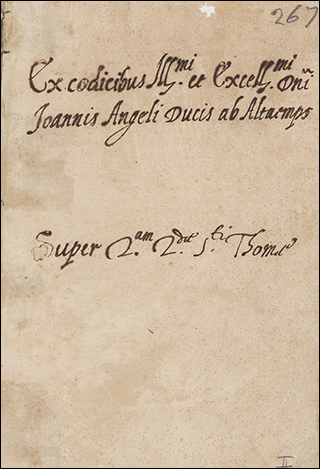 267
Ex codicibus Ill.mi et Excell.mi Dni
Joannis Angeli Ducis ab Altaemps
Super 2.am 2.dae S.ti Thomae
II